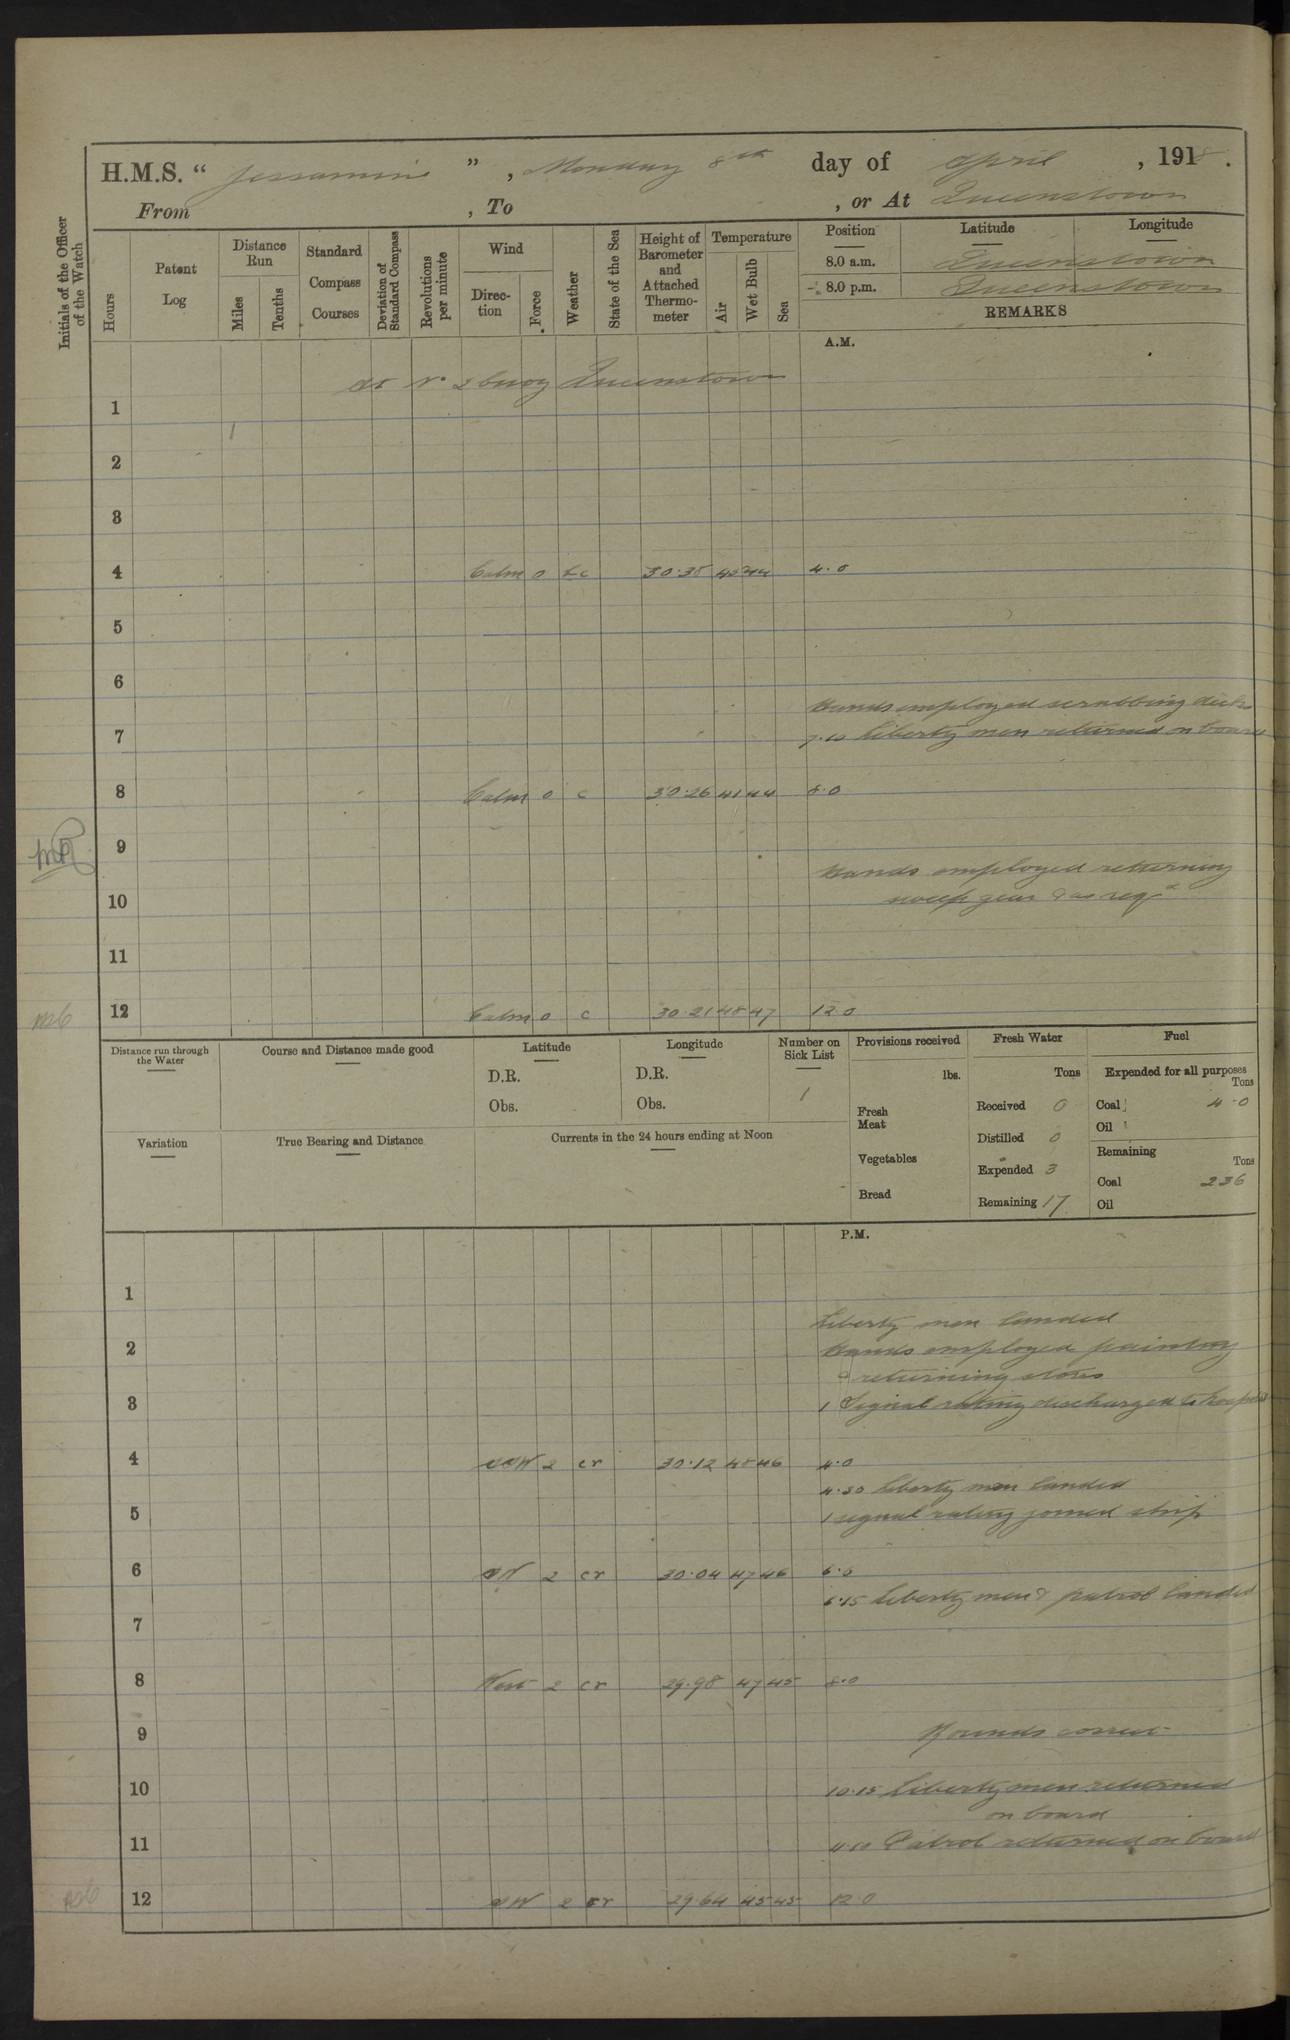 H.M.S. “ Jessamine ” , Monday 8th day of April , 1918 .
From , To , or At Queenstown
Initials of the Officer of the Watch
Hours
Patent Log
Distance Run
Miles
Tenths
Standard Compass Courses
Deviation of Standard Compass
Revolutions per minute
Wind
Direction
Force
Weather
State of the Sea
Height of Barometer and Attached Thermometer
Temperature
Air
Wet Bulb
Sea
Position Latitude Longitude
8.0 a.m. Queenstown
8.0 p.m. Queenstown
REMARKS
A.M.
At No 2 buoy Queenstown
1
2
3
4 Calm 0 30.35 4.0
5
6
Hands employed scrubbing decks
7 7.10 Liberty men returned on board
8 Calm 0 c 30.26 41 44 8.0
9
Hands employed returning
10 sweep gear & as reqd
11
12 Calm 0 c 30.21 48 47 12.0
Distance run through the Water
Course and Distance made good
Latitude
D.R.
Obs.
Longitude
D.R.
Obs.
Number on Sick List
1
Variation
True Bearing and Distance
Currents in the 24 hours ending at Noon
Provisions received
lbs.
Fresh Meat
Vegetables
Bread
Fresh Water
Tons
Received 0
Distilled 0
Expended 3
Remaining 17
Fuel
Expended for all purposes
Tons
Coal 4.0
Oil
Remaining
Tons
Coal 236
Oil
P.M.
1
Liberty men landed
2 Hands employed painting
& returning stores
3 1 Signal rating discharged to hospital
4 SSW 2 cr 30.12 48 46 4.0
4.30 Liberty men landed
5 1 signal rating joined ship
6 SW 2 cr 30.04 47 46 6.0
6.15 Liberty men & patrol landed
7
8 West 2 cr 29.98 47 45 8.0
9 Rounds correct
10 10.15 Liberty men returned
on board
11 Patrol returned on board
12 SW 2 cr 29.64 45 45 12.0